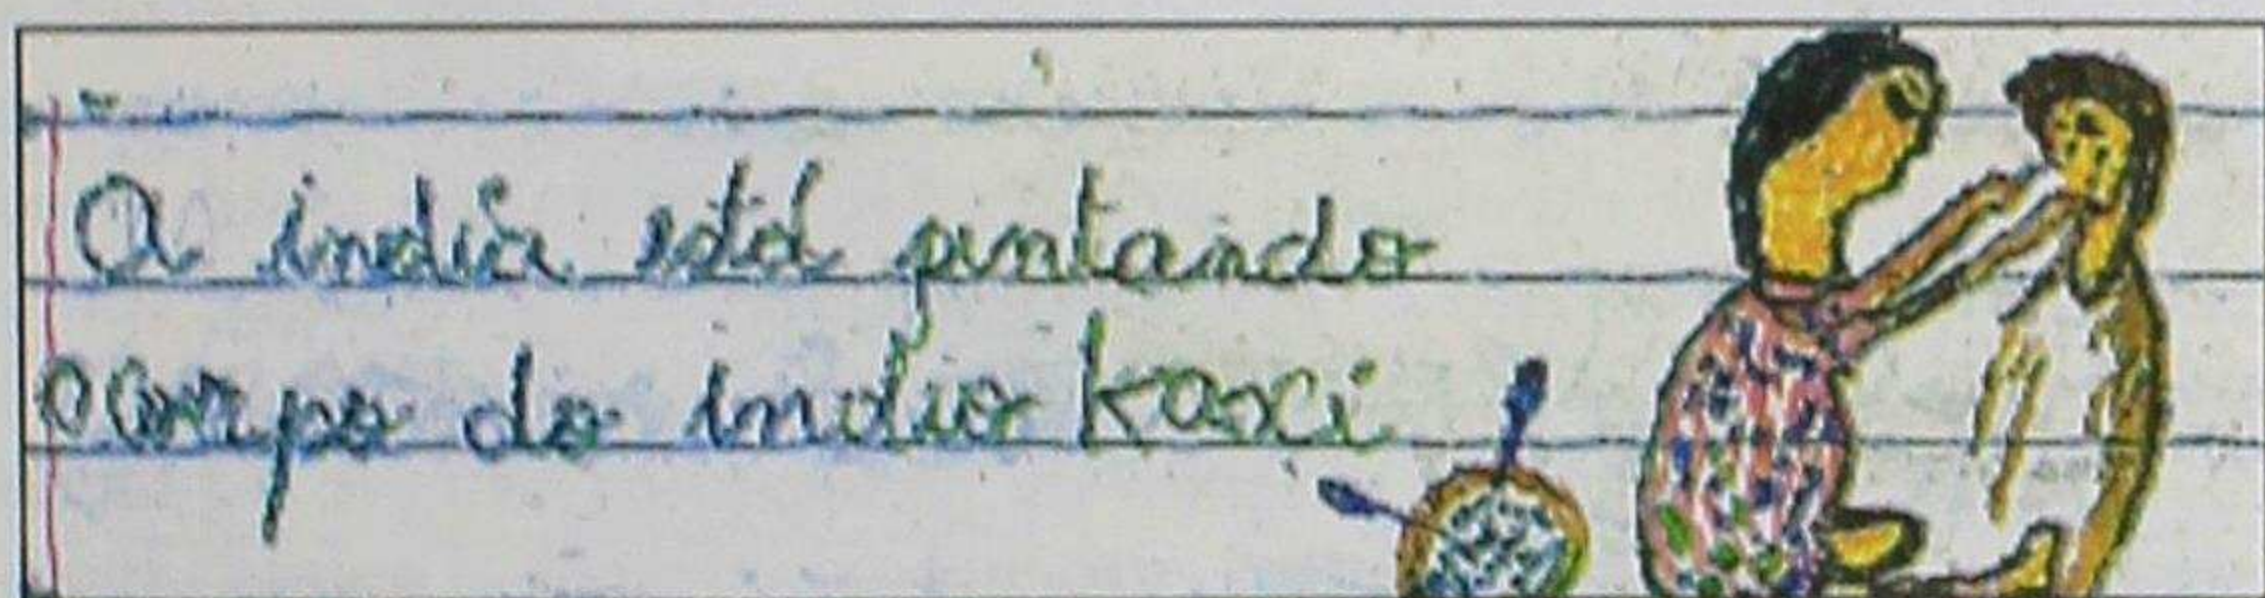 A india está pintando
o corpo do indio kaxi